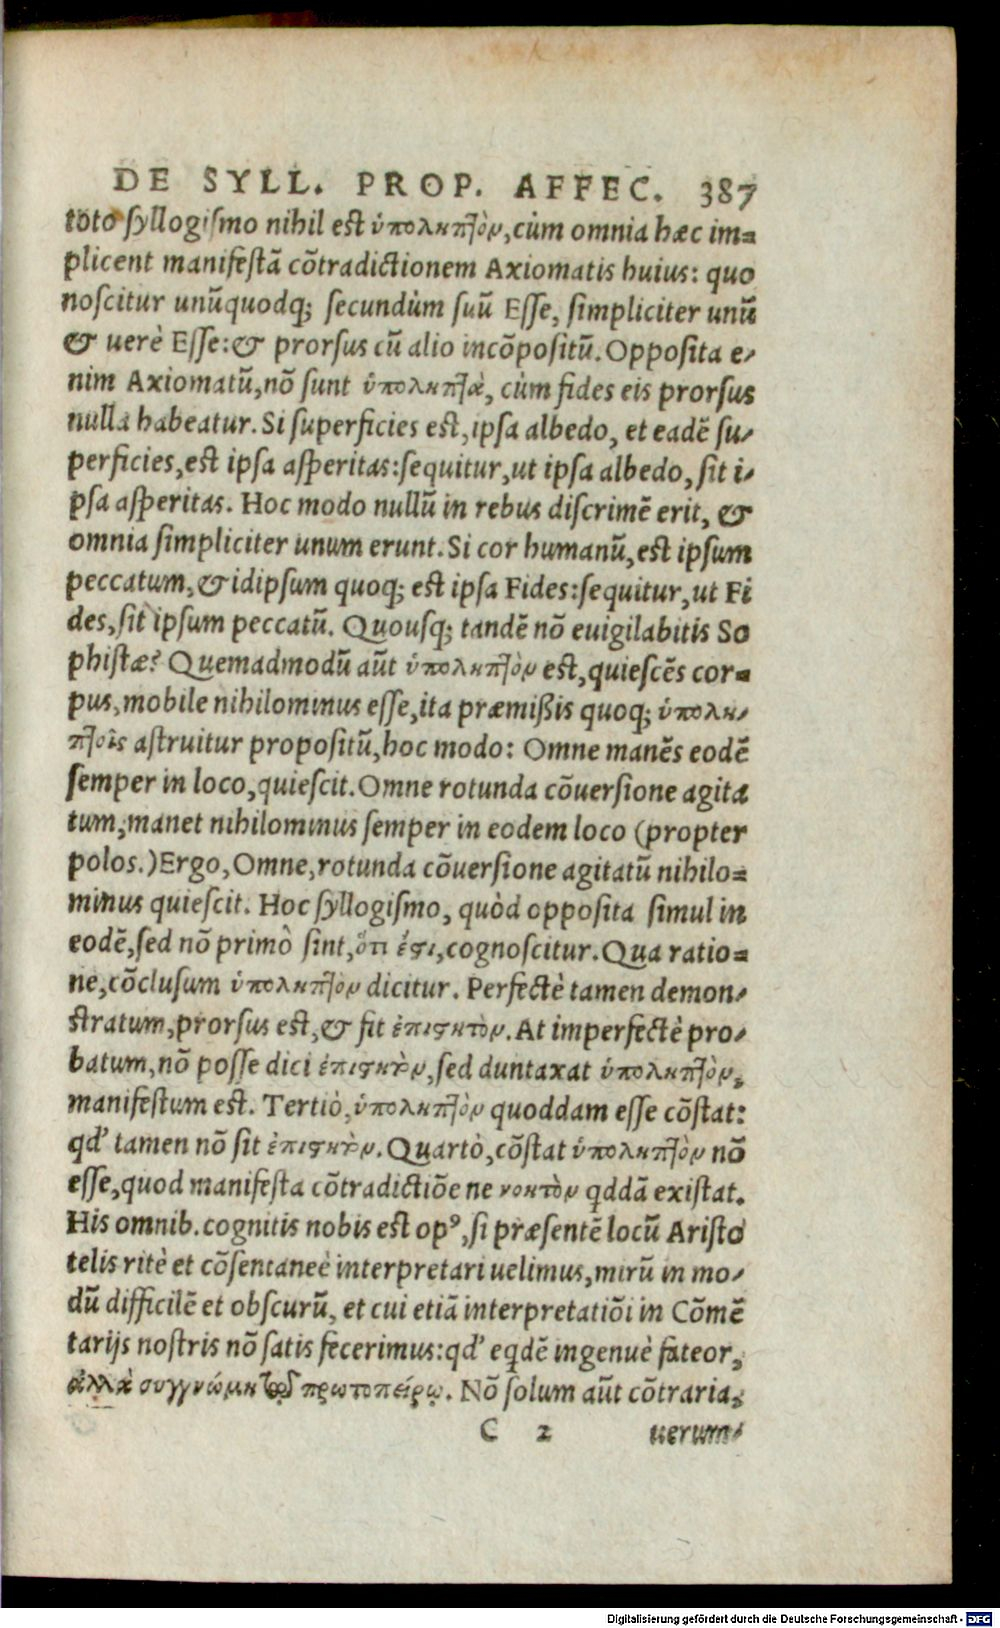 DE SYLL. PROP. AFFEC. 387
toto syllogismo nihil est ὑποληπτὸν, cùm omnia hæc im=
plicent manifestã cõtradictionem Axiomatis huius: quo
noscitur unũquodq; secundùm suũ Esse, simpliciter unũ
& uerè Esse: & prorsus cũ alio incõpositũ. Opposita e-
nim Axiomatũ, nõ sunt ὑποληπτὰ, cùm fides eis prorsus
nulla habeatur. Si superficies est, ipsa albedo, et eadẽ su-
perficies, est ipsa asperitas: sequitur, ut ipsa albedo, sit i-
psa asperitas. Hoc modo nullũ in rebus discrimẽ erit, &
omnia simpliciter unum erunt. Si cor humanũ, est ipsum
peccatum, & idipsum quoq; est ipsa Fides: sequitur, ut Fi
des, sit ipsum peccatũ. Quousq; tandẽ nõ euigilabitis So
phistæ? Quemadmodũ aũt ὑποληπτὸν est, quiescẽs cor=
pus, mobile nihilominus esse, ita præmißis quoq; ὑπολη-
πτοῖς astruitur propositũ, hoc modo: Omne manẽs eodẽ
semper in loco, quiescit. Omne rotunda cõuersione agita
tum, manet nihilominus semper in eodem loco (propter
polos.) Ergo, Omne, rotunda cõuersione agitatũ nihilo=
minus quiescit. Hoc syllogismo, quòd opposita simul in
eodẽ, sed nõ primò sint, ὅτι ἔστι, cognoscitur. Qua ratio=
ne, cõclusum ὑποληπτὸν dicitur. Perfectè tamen demon-
stratum, prorsus est, & fit ἐπιστητὸν. At imperfectè pro-
batum, nõ posse dici ἐπιστητὸν, sed duntaxat ὑποληπτὸν,
manifestum est. Tertiò, ὑποληπτὸν quoddam esse cõstat:
qd' tamen nõ sit ἐπιστητὸν. Quartò, cõstat ὑποληπτὸν nõ
esse, quod manifesta cõtradictiõe ne νοητὸν qddã existat.
His omnib. cognitis nobis est opꝰ, si præsentẽ locũ Aristo
telis ritè et cõsentaneè interpretari uelimus, mirũ in mo-
dũ difficilẽ et obscurũ, et cui etiã interpretatiõi in Cõmẽ
tarijs nostris nõ satis fecerimus: qd' eqdẽ ingenuè fateor,
ἀλλὰ συγγνώμη τῷ πρωτοπείρῳ. Nõ solum aũt cõtraria,
C 2 uerum-
Digitalisierung gefördert durch die Deutsche Forschungsgemeinschaft - DFG